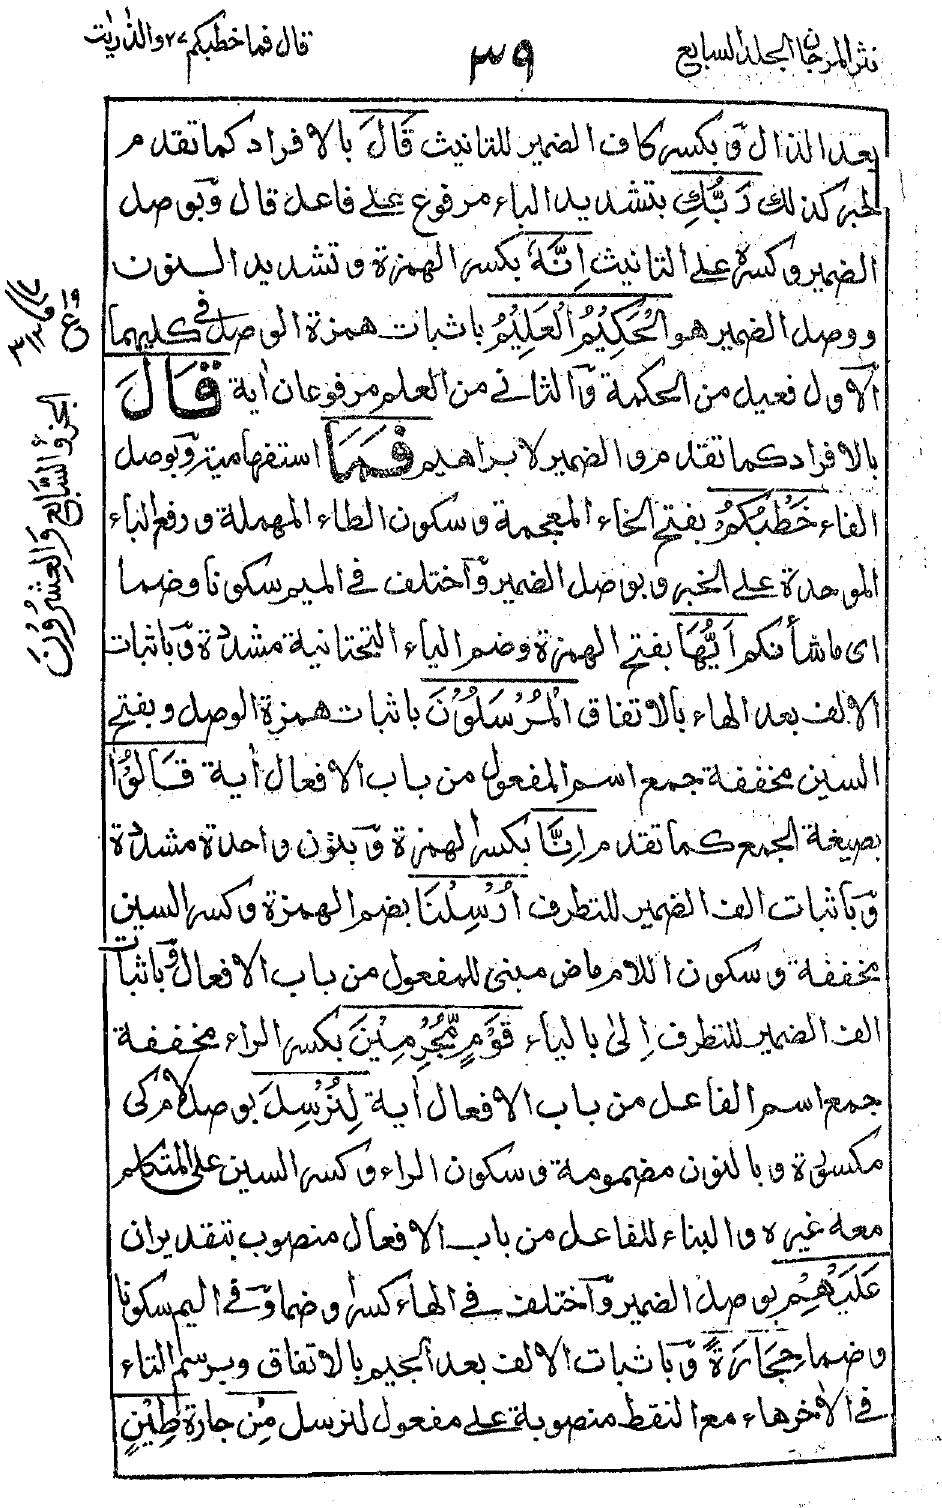 نثر المرجان الجلد السابع
٣٩
قال فما خطبكم ٢٧ والذاريات
بعد الذال وبكسر كاف الضمير للتانيث قَالَ بالافراد كما تقدم
لخبر كذلك رَبُّكِ بتشديد الباء مرفوع على فاعل قال وبوصل
الضمير وكسرة على التانيث اِنَّهٗ بكسر الهمزة وتشديد النون
ووصل الضمير هو الْحَكِيْمُ الْعَلِيْمُ باثبات همزة الوصل في كليهما
الاول فعيل من الحكمة والثاني من العلم مرفوعان اية قَالَ
بالافراد كما تقدم والضمير لابراهيم فَمَا استفهامية وبوصل
الفاء خَطْبُكُمْ بفتح الخاء المعجمة وسكون الطاء المهملة ورفع الباء
الموحدة على الخبر وبوصل الضمير واختلف في الميم سكونا وضما
اى ما شأنكم اَيُّهَا بفتح الهمزة وضم الياء التحتانية مشددة وباثبات
الالف بعد الهاء بالاتفاق الْمُرْسَلُوْنَ باثبات همزة الوصل وبفتح
السين مخففة جمع اسم المفعول من باب الافعال اية قَالُوْا
بصيغة الجمع كما تقدم اِنَّا بكسر الهمزة وبنون واحدة مشددة
وباثبات الف الضمير للتطرف اُرْسِلْنَا بضم الهمزة وكسر السين
مخففة وسكون اللام ماض مبنى للمفعول من باب الافعال وباثبات
الف الضمير للتطرف اِلىٰ بالياء قَوْمٍ مُّجْرِمِيْنَ بكسر الراء مخففة
جمع اسم الفاعل من باب الافعال اية لِنُرْسِلَ بوصل لام كى
مكسورة وبالنون مضمومة وسكون الراء وكسر السين على المتكلم
معه غيره والبناء للفاعل من باب الافعال منصوب بتقدير ان
عَلَيْهِمْ بوصل الضمير واختلف في الهاء كسرا وضما وفي الميم سكونا
وضما حِجَارَةً وباثبات الالف بعد الجيم بالاتفاق وبرسم التاء
في الاخر هاء مع النقط منصوبة على مفعول لنرسل مِّنْ جارة طِيْنٍ
الجزؤ السَّابع وَالعِشْرُوْنَ